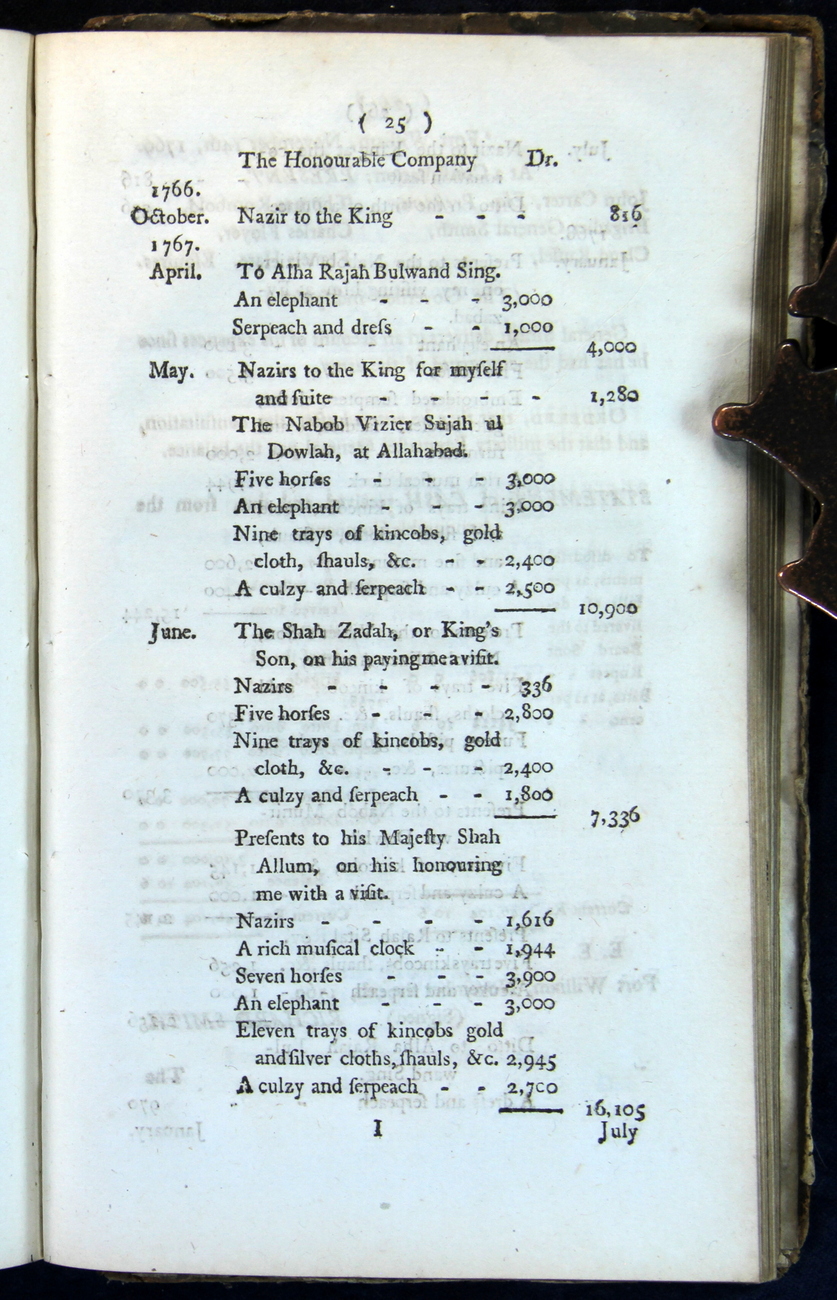 ( 25 )
The Honourable Company Dr.
1766.
October. Nazir to the King - - - 816
1767.
April. To Alha Rajah Bulwand Sing.
An elephant - - - 3,000
Serpeach and dreſs - - 1,000
4,000
May. Nazirs to the King for myſelf
and ſuite - - - - 1,280
The Nabob Vizier Sujah ul
Dowlah, at Allahabad.
Five horſes - - - 3,000
An elephant - - - 3,000
Nine trays of kincobs, gold
cloth, ſhauls, &c. - - 2,400
A culzy and ſerpeach - - 2,500
10,900
June. The Shah Zadah, or King's
Son, on his paying me a viſit.
Nazirs - - - - 336
Five horſes - - - 2,800
Nine trays of kincobs, gold
cloth, &c. - - - 2,400
A culzy and ſerpeach - - 1,800
7,336
Preſents to his Majeſty Shah
Allum, on his honouring
me with a viſit.
Nazirs - - - - 1,616
A rich muſical clock - - 1,944
Seven horſes - - - 3,900
An elephant - - - 3,000
Eleven trays of kincobs gold
and ſilver cloths, ſhauls, &c. 2,945
A culzy and ſerpeach - - 2,700
16,105
I July